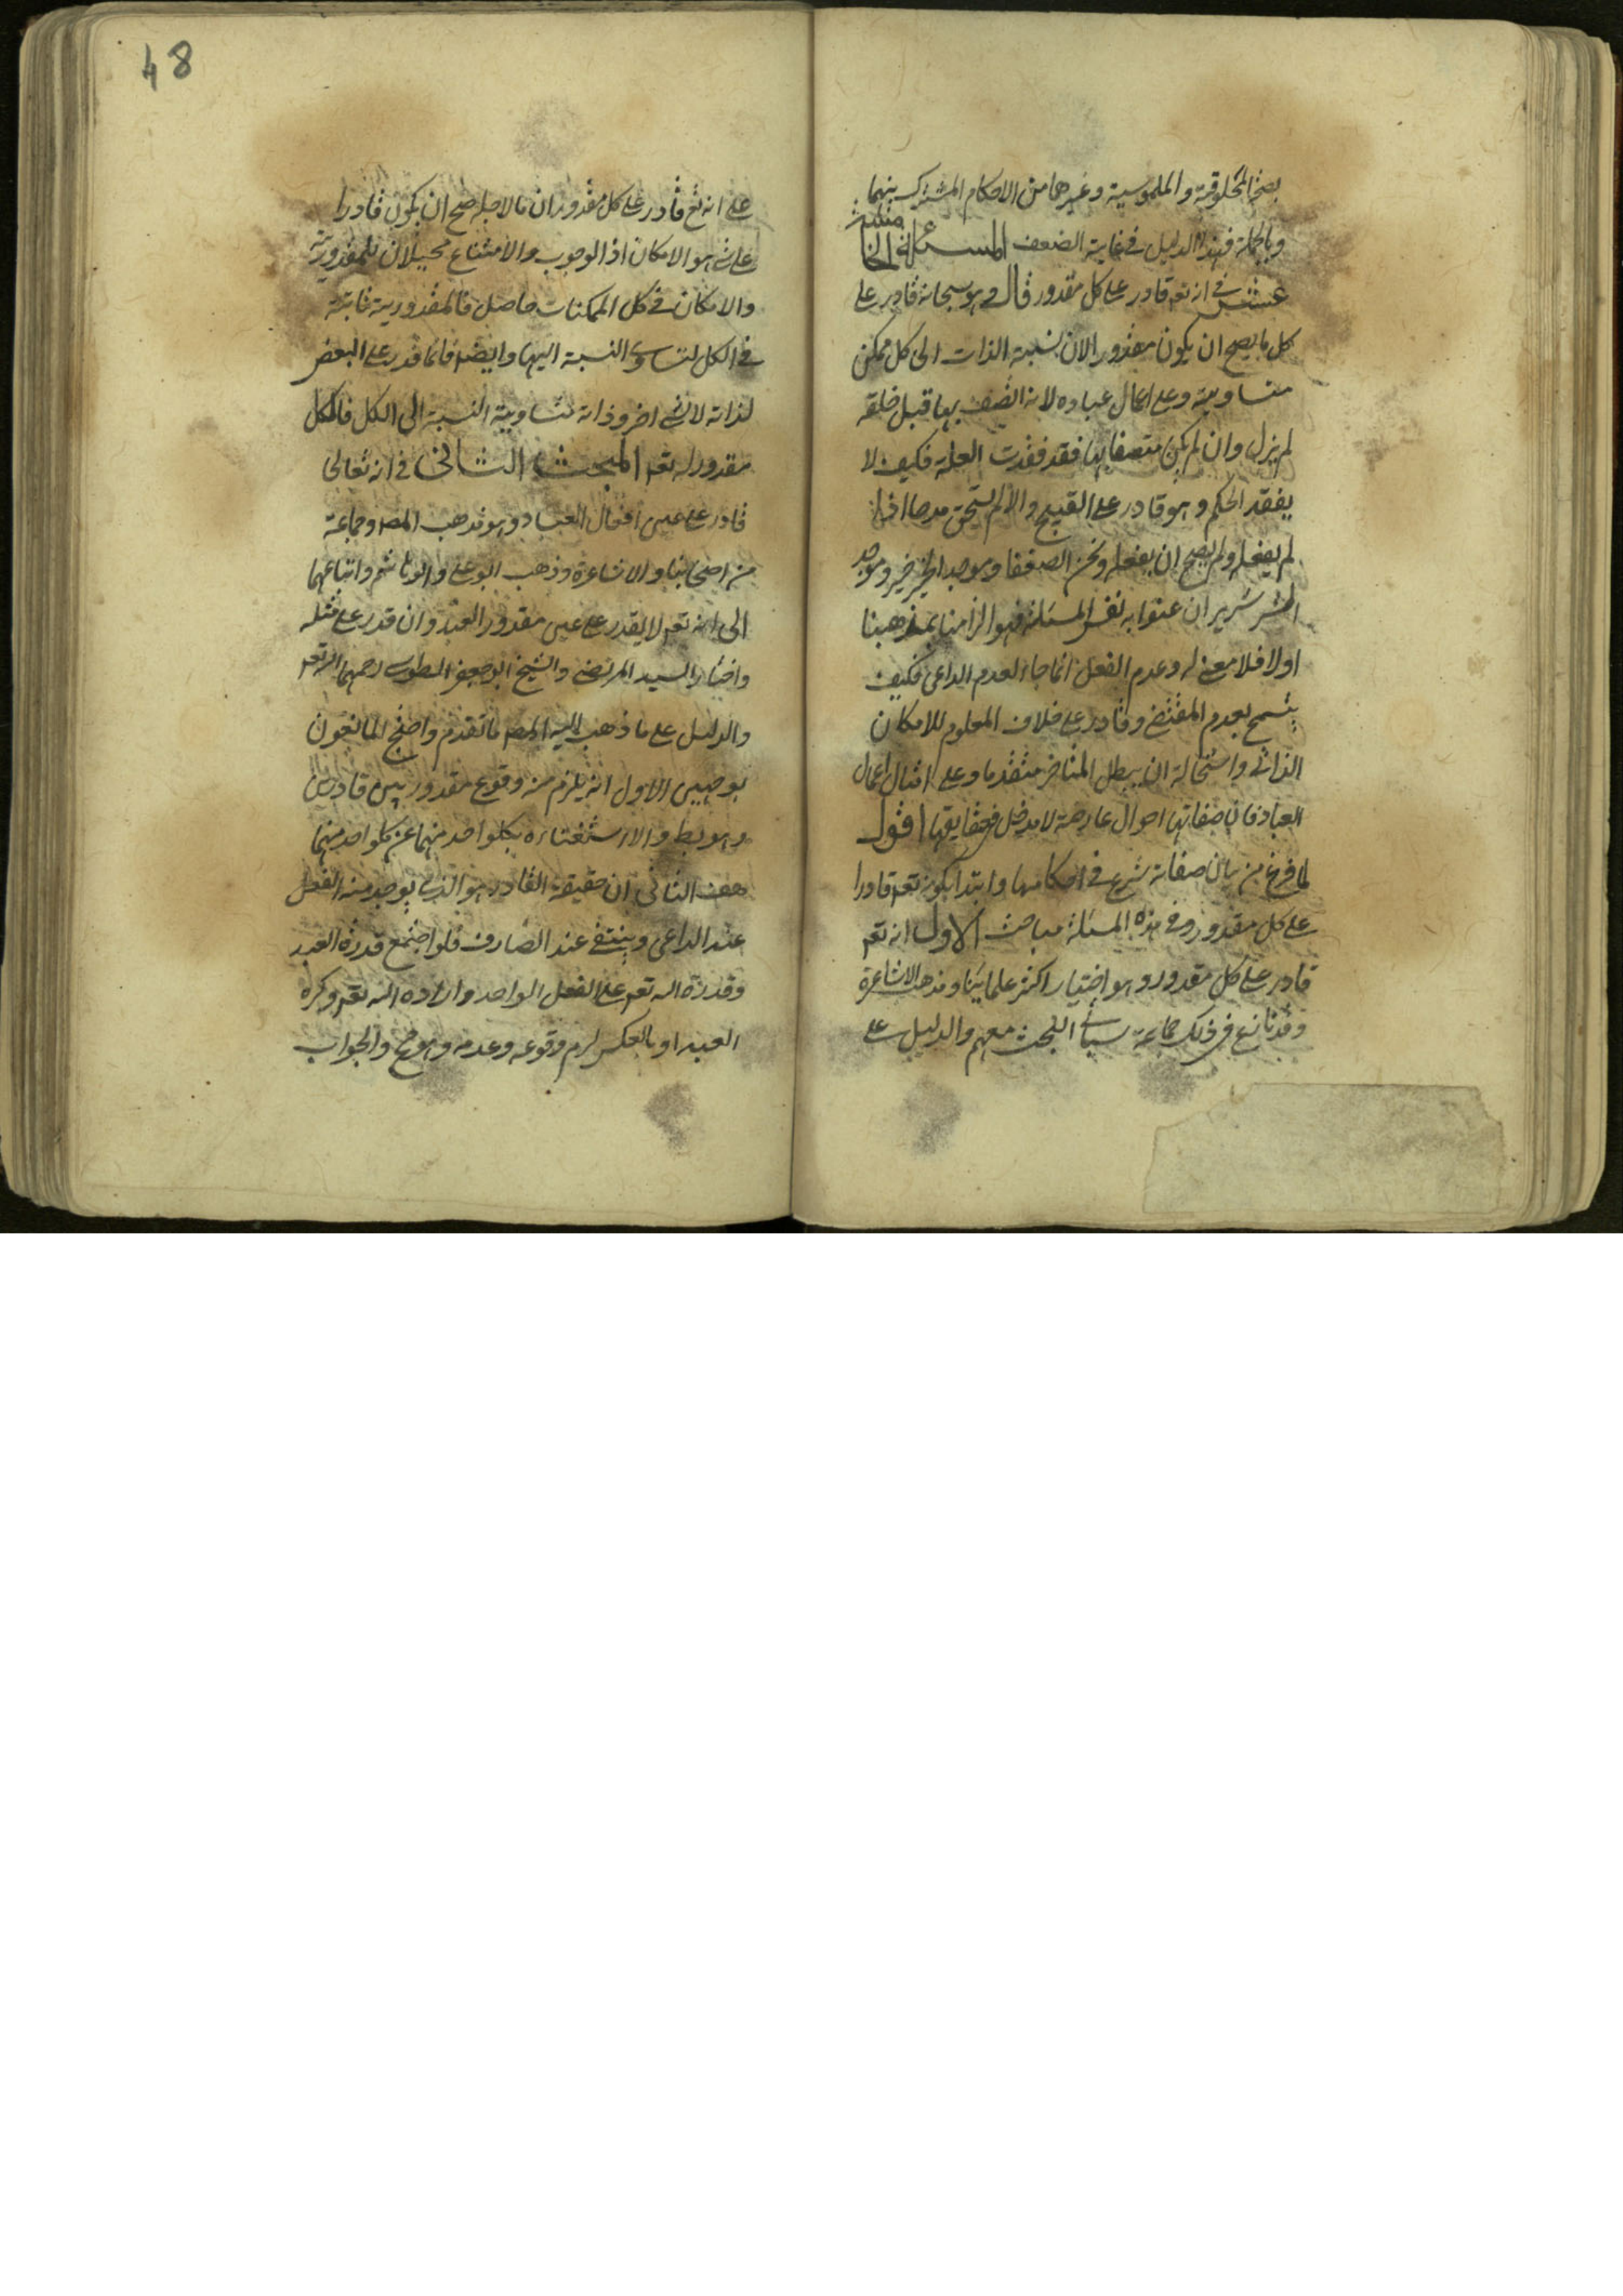 بصحة المخلوقية والملموسية وغيرها من الاحكام المشترك بينهما
وبالجملة فهذا الدليل في غاية الضعف المسئلة
في انه تعم قادر على كل مقدور قال وهو سبحانه قادر على
كل ما يصح ان يكون مقدورا لان نسبة الذات الى كل ممكن
متساوية وعلى اعمال عباده لانه اتصف بها قبل خلقه
لم يزل وان لم يكن متصفا بها فقد فقدت العلة فكيف لا
يفقد الحكم وهو قادر على القبيح والا لم يستحق مدحا اذا
لم يفعله ولم يصح ان يفعله ونحن الصفقا وموجد الخير خير وموجد
الشر شرير ان عنوا به نفس المسئلة فهو الزامنا بمذهبنا
اولا فلا معنى له وعدم الفعل انما جاء لعدم الداعي فكيف
يسمح بعدم المقتضى وقادر على خلاف المعلوم للامكان
الذاتي واستحالة ان يبطل المتاخر متقدما وعلى امثال اعمال
العباد فان صفاتها احوال عارضة لا مدخل في حقايقها اقول
لما فرغ من بيان صفاته شرع في احكامها وابتدا بكونه تعم قادرا
على كل مقدور وفي هذه المسئلة مباحث الاول انه تعم
قادر على كل مقدور وهو اختيار اكثر علمائنا ومذهب الاشاعرة
وقد نازع في ذلك جماعة سيأتي البحث معهم والدليل على
48
على انه تع قادر على كل مقدور ان ما لاجله صح ان يكون قادرا
على شئ هو الامكان اذ الوجوب والامتناع محيلان للمقدورية
والامكان في كل الممكنات حاصل فالمقدورية ثابتة
في الكل لتساوي النسبة اليها وايضا فانما قدر على البعض
لذاته لا لشئ اخر وذاته متساوية النسبة الى الكل فالكل
مقدور له تعم المبحث الثاني في انه تعالى
قادر على عين افعال العباد وهو مذهب المصـ وجماعة
من اصحابنا والاشاعرة وذهب ابو علي وابو هاشم واتباعهما
الى انه تعم لا يقدر على عين مقدور العبد وان قدر على مثله
واختاره السيد المرتضى والشيخ ابو جعفر الطوسي رحمهما الله تعم
والدليل على ما ذهب اليه المصـ ما تقدم واحتج المانعون
بوجهين الاول انه يلزم منه وقوع مقدور بين قادرين
وهو بط والا استغناءه بكل واحد منهما عن كل واحد منهما
هف الثاني ان حقيقة القادر هو الذي يوجد منه الفعل
عند الداعي وينتفي عند الصارف فلو اجتمع قدرة العبد
وقدرة الله تعم على الفعل الواحد واراده الله تعم وكره
العبد او بالعكس لزم وقوعه وعدمه وهو مح والجواب